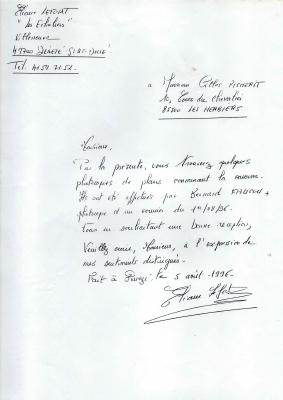 "Les Echaliers"
Villeneuve
Tel. 41.54.71.51.
à Monsieur Gilles PICHERIT
10, Cour du chevalier
85500 LES HERBIERS
Monsieur,
Par la présente, vous trouverez quelques
photocopies de plans concernant la
Ils ont été effectués par Bernard FAUCOU +
photocopie d'un courrier du 1er/08/96.
Vous en souhaitant une bonne réception,
Veuillez croire, Monsieur, à l'expression de
mes sentiments distingués.
Fait à le 5 août 1996.